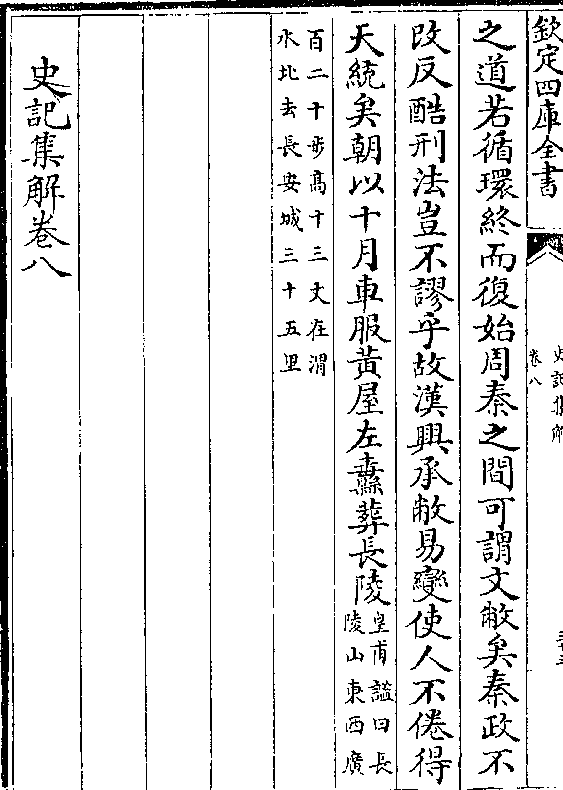 欽定四庫全書
史記集解
卷八
之道若循環終而復始周秦之間可謂文敝矣秦政不
改反酷刑法豈不謬乎故漢興承敝易變使人不倦得
天統矣朝以十月車服黃屋左纛葬長陵皇甫謐曰長陵山東西廣
百二十步高十三丈在渭
水北去長安城三十五里
史記集解卷八